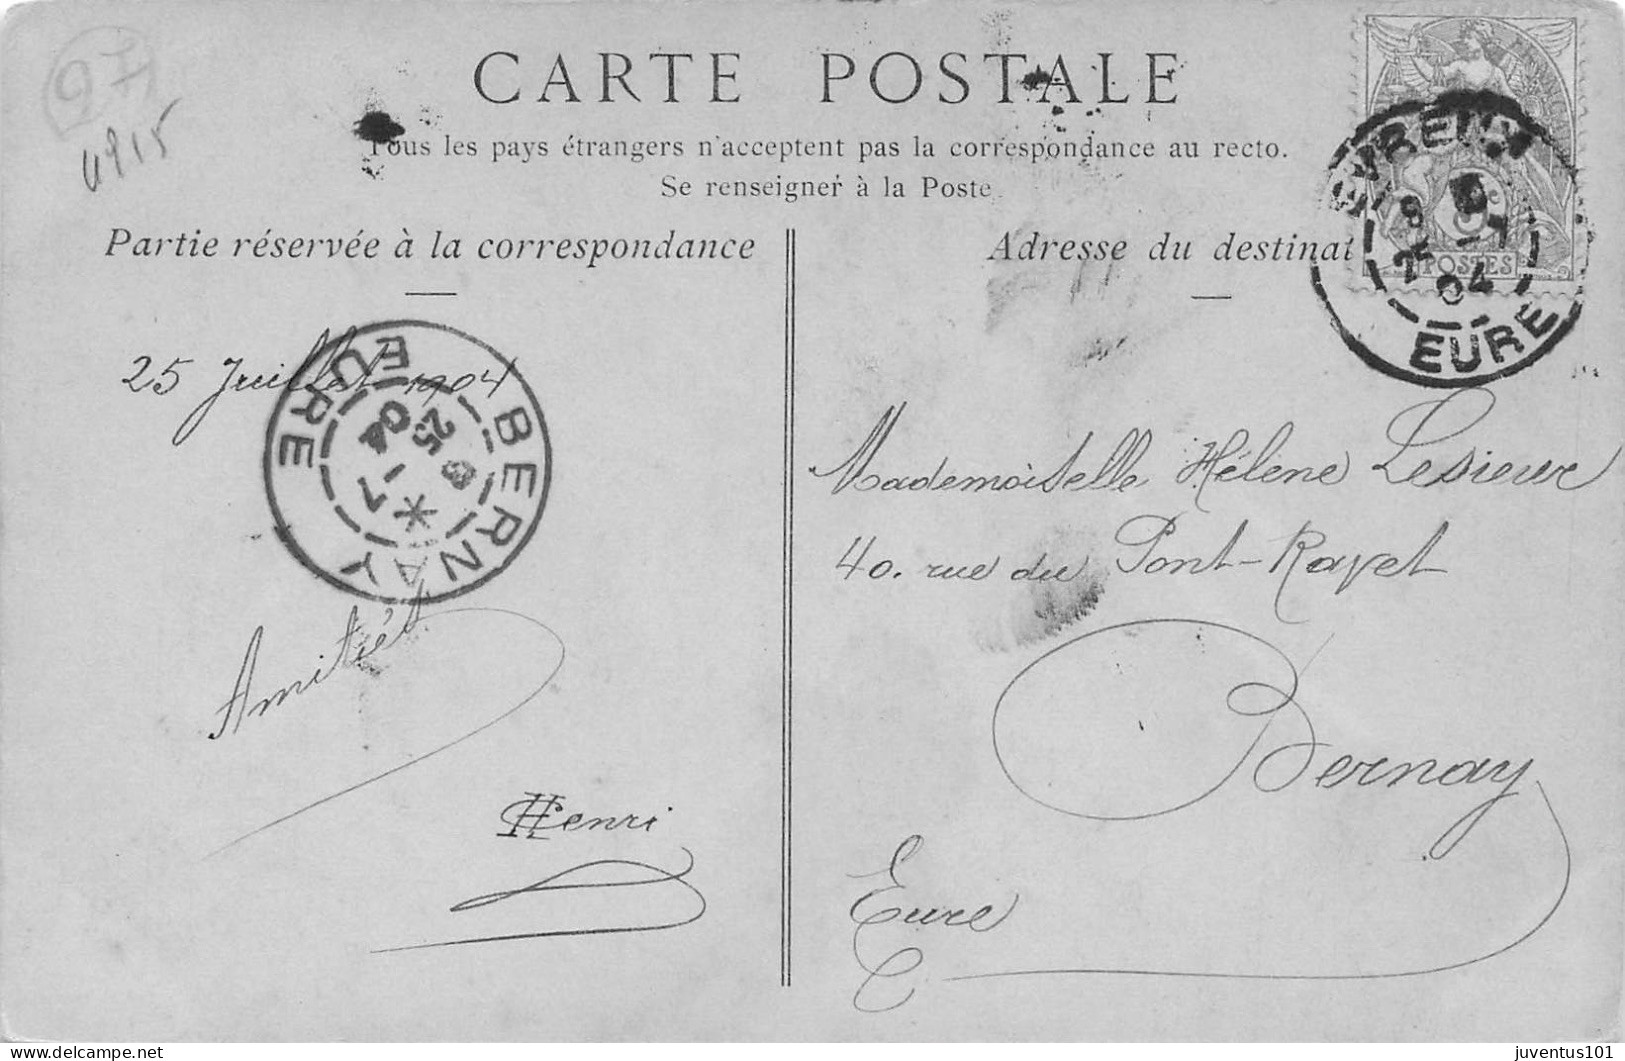 97
4915
CARTE POSTALE
Tous les pays étrangers n'acceptent pas la correspondance au recto.
Se renseigner à la Poste
Partie réservée à la correspondance
Adresse du destinat
EVREUX
8
25 -7
04
EURE
POSTES
25 Juillet 1904
BERNAY
EURE
25
7 - 04
Amitiés
Henri
Mademoiselle Hélène Lesieur
40. rue du Pont-Rayet
Bernay
Eure
delcampe.net
juventus101